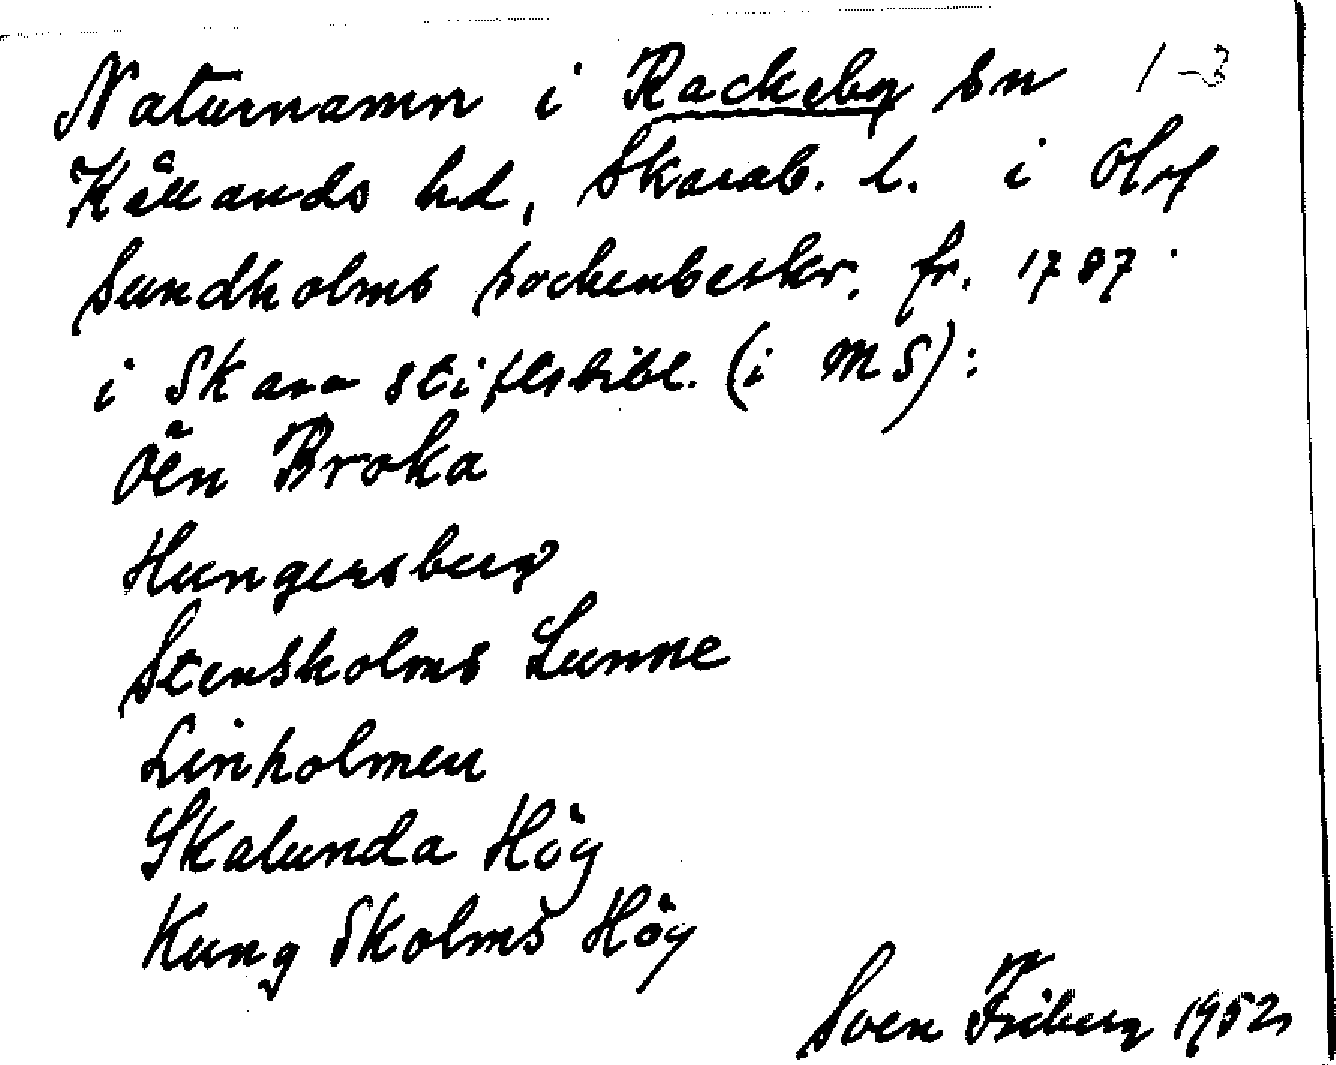 Naturnamn i Rackeby sn 1-3
Kållands hd, Skarab. l. i Olof
Sundholms sockenbeskr. fr. 1787
i Skara stiftsbibl. (i MS):
Öen Broka
Hungersberg
Stensholms Lunne
Linholmen
Skalunda Hög
Kung Skolms Hög
Sven Friberg 1952